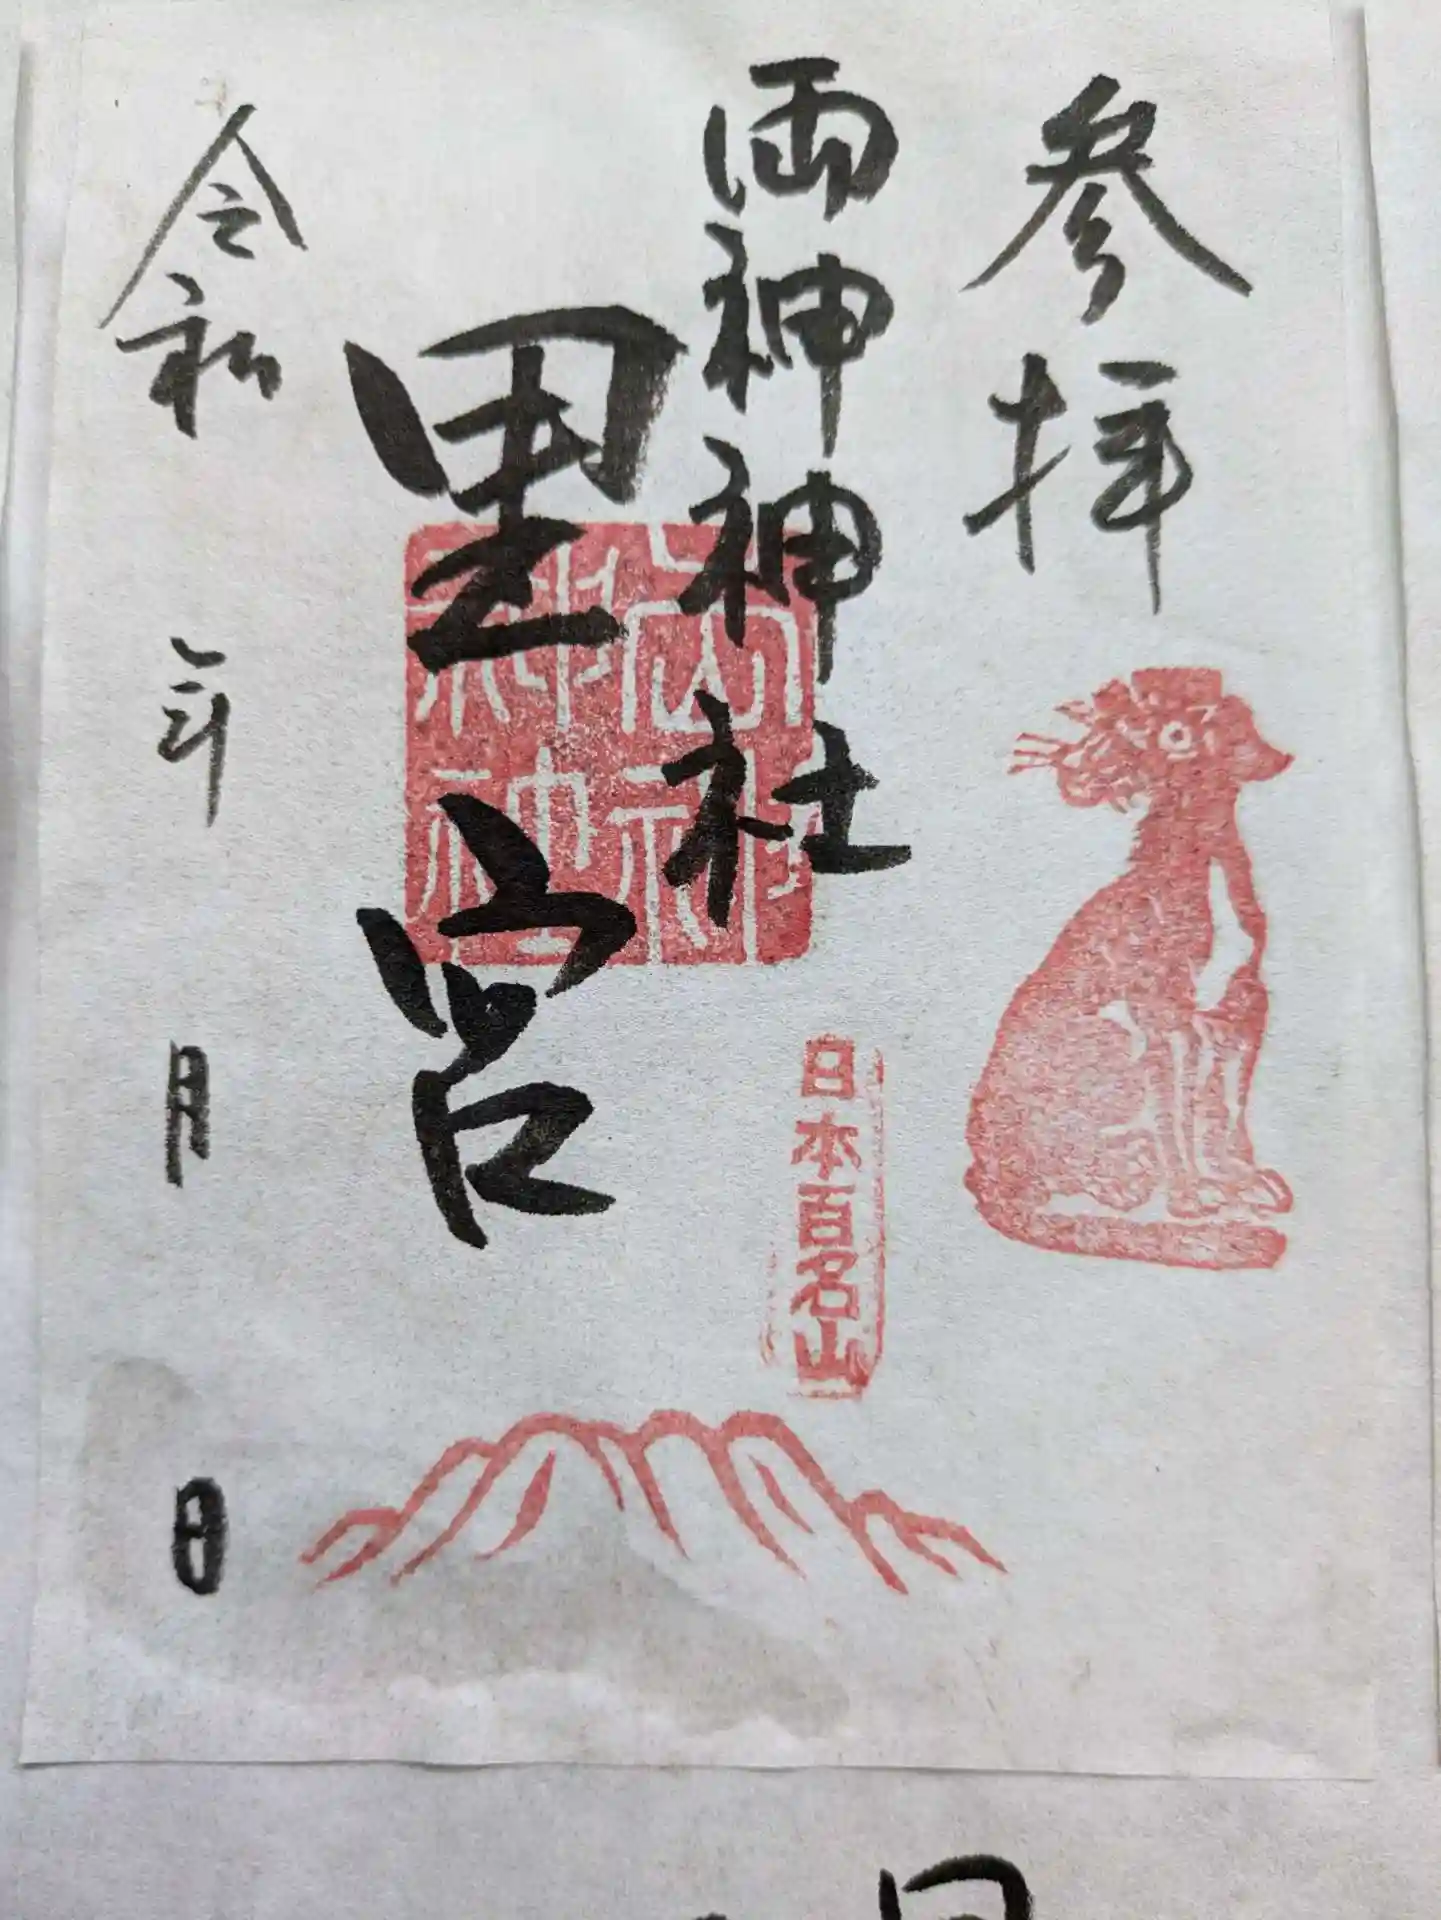 参拝
両神神社
里宮
両神神社
日本百名山
令和 年 月 日